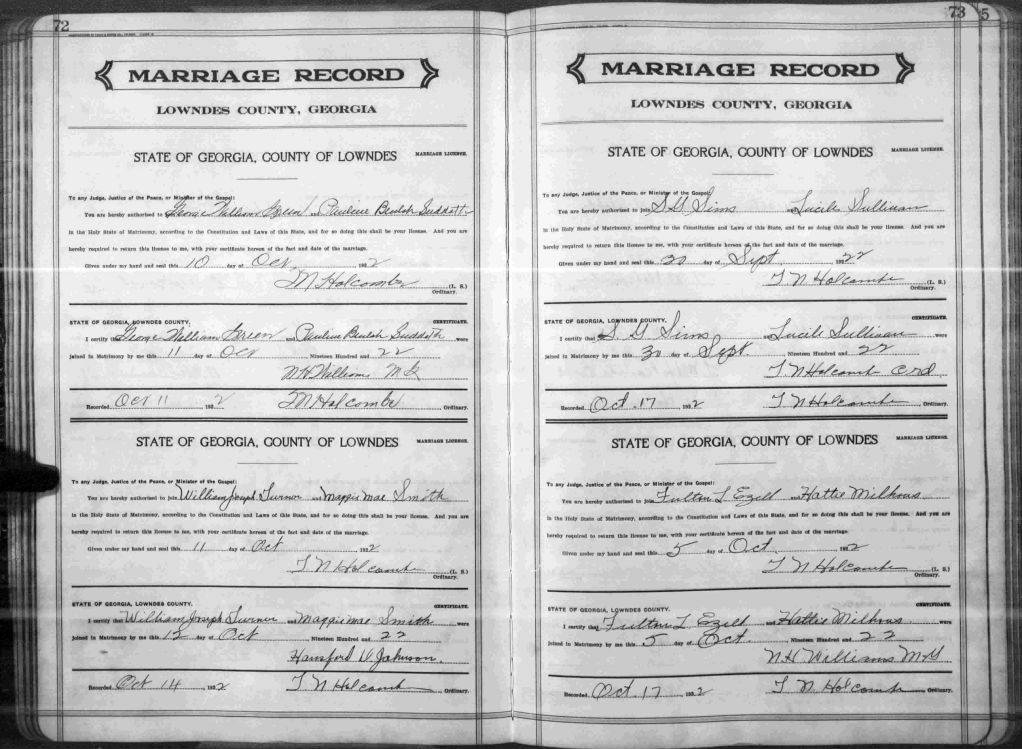 72
MARRIAGE RECORD
LOWNDES COUNTY, GEORGIA
STATE OF GEORGIA, COUNTY OF LOWNDES MARRIAGE LICENSE.
To any Judge, Justice of the Peace, or Minister of the Gospel:
You are hereby authorised to join George William Green and Pauline Beulah Suddath
in the Holy State of Matrimony, according to the Constitution and Laws of this State, and for so doing this shall be your license. And you are
hereby required to return this license to me, with your certificate hereon of the fact and date of the marriage.
Given under my hand and seal this 10 day of Oct 1922
T N Holcombe (L. S.)
Ordinary.
STATE OF GEORGIA, LOWNDES COUNTY. CERTIFICATE.
I certify that George William Green and Pauline Beulah Suddath were
joined in Matrimony by me this 11 day of Oct Nineteen Hundred and 22
N H Williams M G
Recorded Oct 11 1922 T N Holcombe Ordinary.
STATE OF GEORGIA, COUNTY OF LOWNDES MARRIAGE LICENSE.
To any Judge, Justice of the Peace, or Minister of the Gospel:
You are hereby authorised to join William Joseph Turner and Maggie Mae Smith
in the Holy State of Matrimony, according to the Constitution and Laws of this State, and for so doing this shall be your license. And you are
hereby required to return this license to me, with your certificate hereon of the fact and date of the marriage.
Given under my hand and seal this 11 day of Oct 1922
T N Holcombe (L. S.)
Ordinary.
STATE OF GEORGIA, LOWNDES COUNTY. CERTIFICATE.
I certify that William Joseph Turner and Maggie Mae Smith were
joined in Matrimony by me this 12 day of Oct Nineteen Hundred and 22
Hansford D. Johnson.
Recorded Oct 14 1922 T N Holcomb Ordinary.
73 5
MARRIAGE RECORD
LOWNDES COUNTY, GEORGIA
STATE OF GEORGIA, COUNTY OF LOWNDES MARRIAGE LICENSE.
To any Judge, Justice of the Peace, or Minister of the Gospel:
You are hereby authorised to join S. G. Sims Lucile Sullivan
in the Holy State of Matrimony, according to the Constitution and Laws of this State, and for so doing this shall be your license. And you are
hereby required to return this license to me, with your certificate hereon of the fact and date of the marriage.
Given under my hand and seal this 30 day of Sept. 1922
T N Holcombe (L. S.)
Ordinary.
STATE OF GEORGIA, LOWNDES COUNTY. CERTIFICATE.
I certify that S. G Sims and Lucile Sullivan were
joined in Matrimony by me this 30 day of Sept. Nineteen Hundred and 22
T. N Holcomb Ord
Recorded Oct. 17 1922 T N Holcombe Ordinary.
STATE OF GEORGIA, COUNTY OF LOWNDES MARRIAGE LICENSE.
To any Judge, Justice of the Peace, or Minister of the Gospel:
You are hereby authorised to join Fulton L Ezell and Hattie Milhous
in the Holy State of Matrimony, according to the Constitution and Laws of this State, and for so doing this shall be your license. And you are
hereby required to return this license to me, with your certificate hereon of the fact and date of the marriage.
Given under my hand and seal this 5 day of Oct. 1922
T N Holcomb (L. S.)
Ordinary.
STATE OF GEORGIA, LOWNDES COUNTY. CERTIFICATE.
I certify that Fulton L Ezell and Hattie Milhous were
joined in Matrimony by me this 5 day of Oct. Nineteen Hundred and 22
N. H. Williams M G
Recorded Oct. 17 1922 T N Holcomb Ordinary.